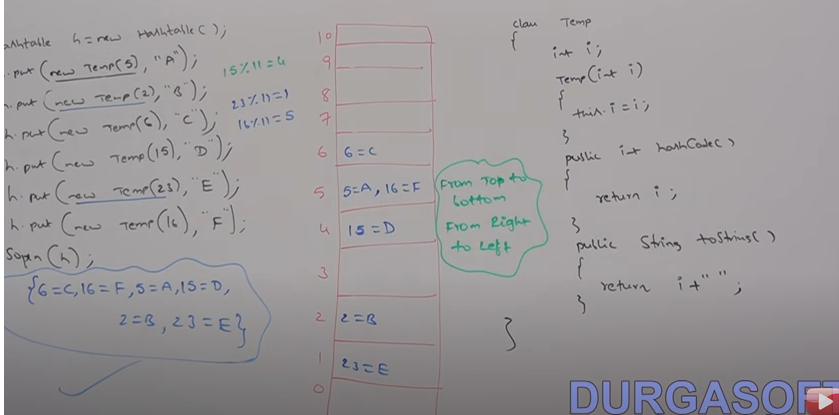 ashtable h = new Hashtable();
.put(new Temp(5), "A");
h.put(new Temp(2), "B");
h.put(new Temp(6), "C");
h.put(new Temp(15), "D");
h.put(new Temp(23), "E");
h.put(new Temp(16), "F");
Sopln(h);
{6=C, 16=F, 5=A, 15=D,
2=B, 23=E}
15%11=4
23%11=1
16%11=5
10
9
8
7
6 6=C
5 5=A, 16=F
4 15=D
3
2 2=B
1 23=E
0
From Top to
bottom
From Right
to Left
class Temp
{
int i;
Temp(int i)
{
this.i=i;
}
public int hashCode()
{
return i;
}
public String toString()
{
return i+"";
}
}
DURGASOFT